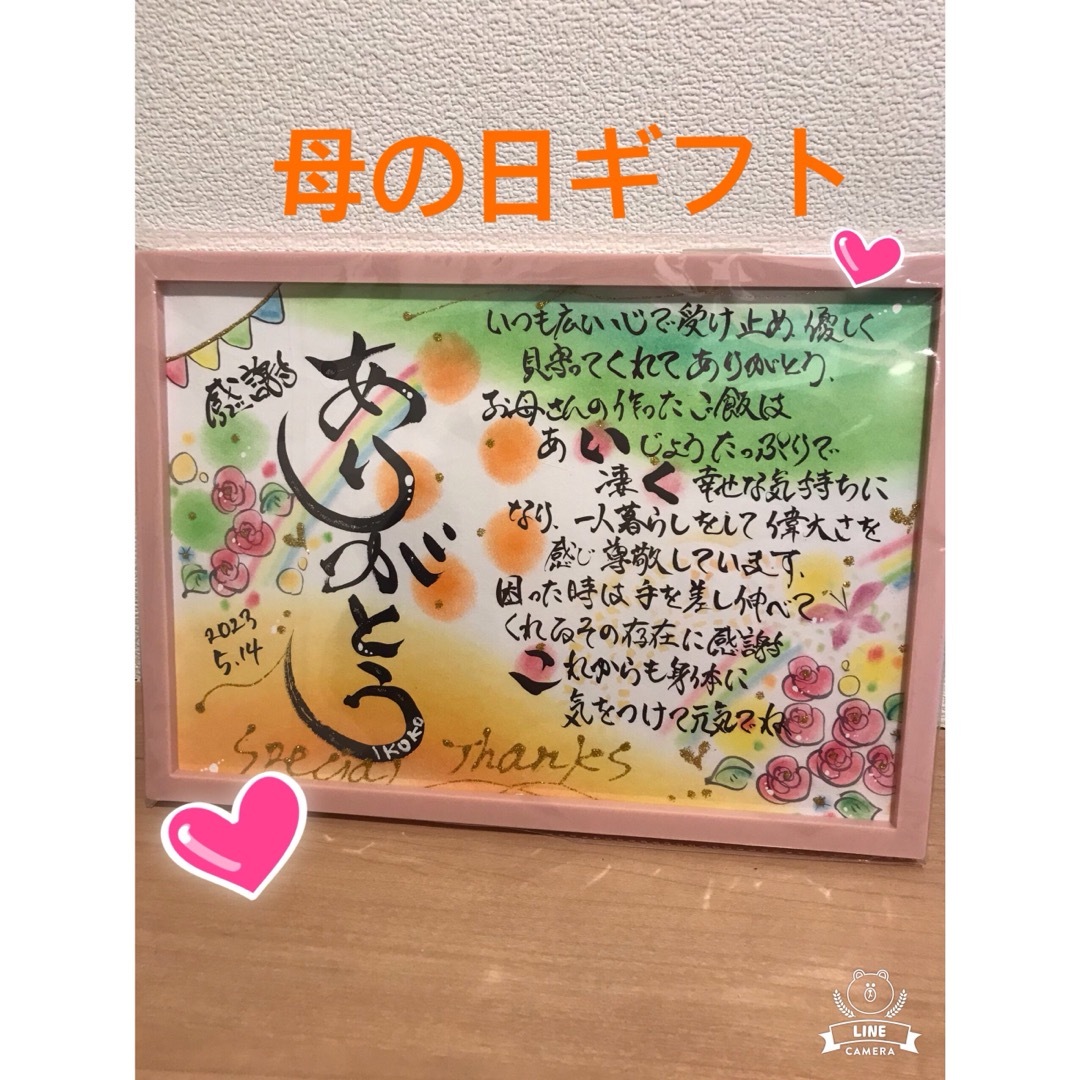 母の日ギフト
感謝
ありがとう
いつも広い心で受け止め優しく
見守ってくれてありがとう、
お母さんの作ったご飯は
あいじょうたっぷりで
凄く幸せな気持ちに
なり、一人暮らしをして偉大さを
感じ尊敬しています、
困った時は手を差し伸べて
くれるその存在に感謝
これからも身体に
気をつけて元気でね
2023
5.14
IKOKO
Special Thanks
LINE
CAMERA